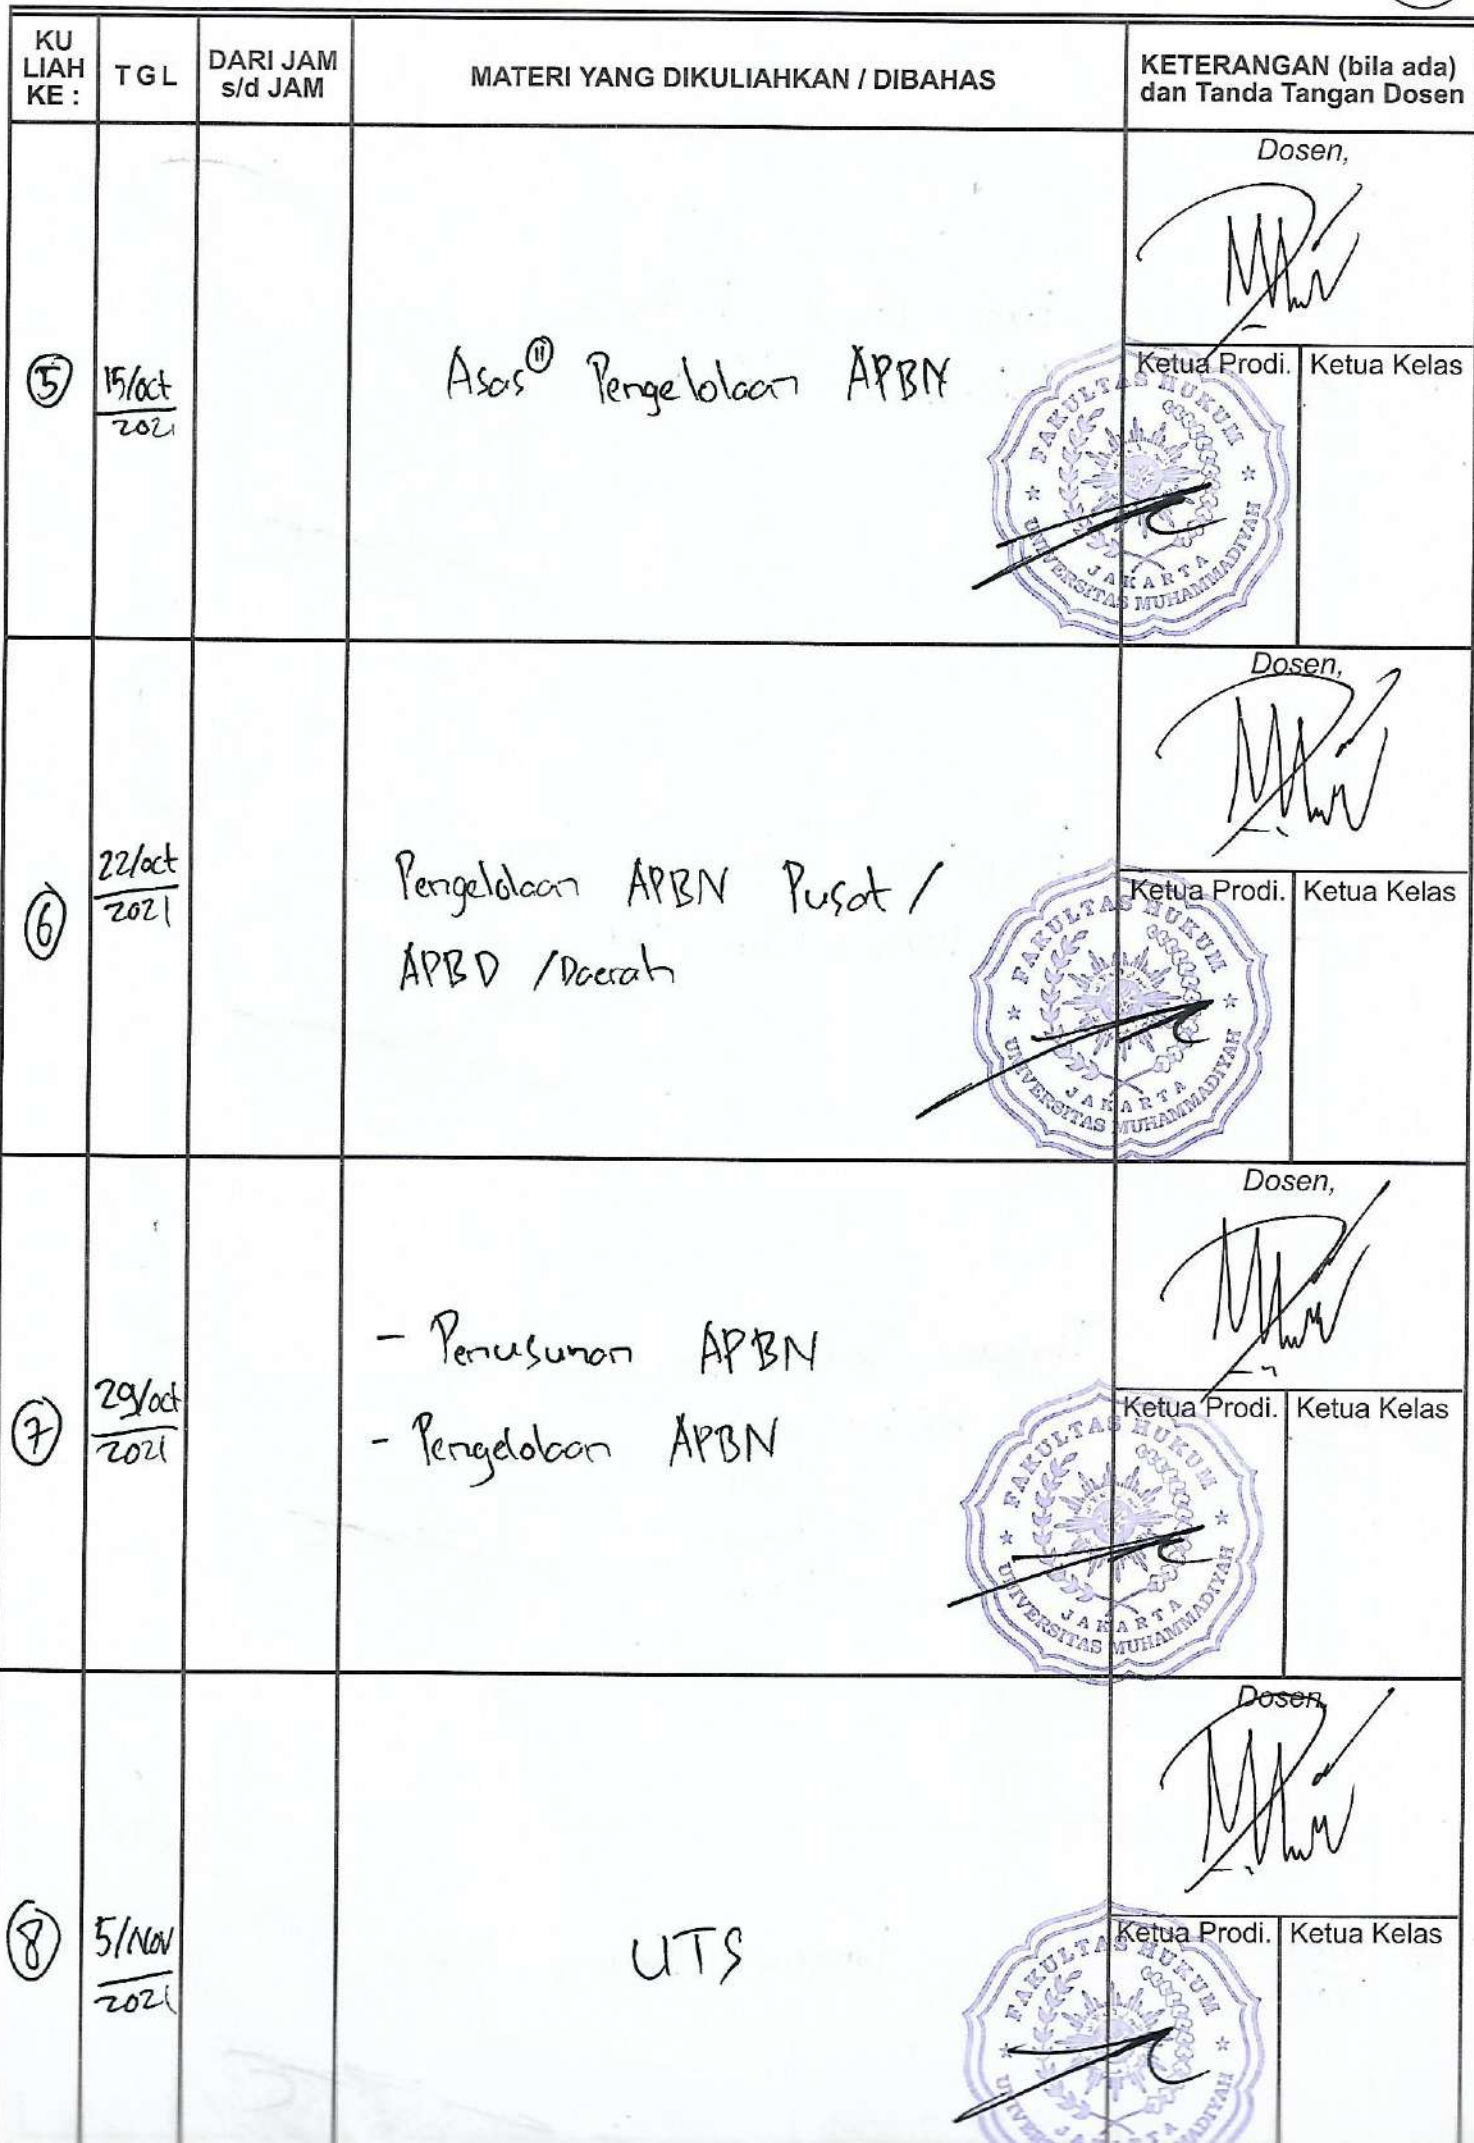 KU
LIAH
KE :
TGL
DARI JAM
s/d JAM
MATERI YANG DIKULIAHKAN / DIBAHAS
KETERANGAN (bila ada)
dan Tanda Tangan Dosen
Dosen,
5
15/oct
2021
Asas" Pengelolaan APBN
Ketua Prodi.
Ketua Kelas
FAKULTAS HUKUM
UNIVERSITAS MUHAMMADIYAH
JAKARTA
Dosen,
6
22/oct
2021
Pengelolaan APBN Pusat /
APBD / Daerah
Ketua Prodi.
Ketua Kelas
FAKULTAS HUKUM
UNIVERSITAS MUHAMMADIYAH
JAKARTA
Dosen,
7
29/oct
2021
- Penusunan APBN
- Pengelolaan APBN
Ketua Prodi.
Ketua Kelas
FAKULTAS HUKUM
UNIVERSITAS MUHAMMADIYAH
JAKARTA
Dosen,
8
5/Nov
2021
UTS
Ketua Prodi.
Ketua Kelas
FAKULTAS HUKUM